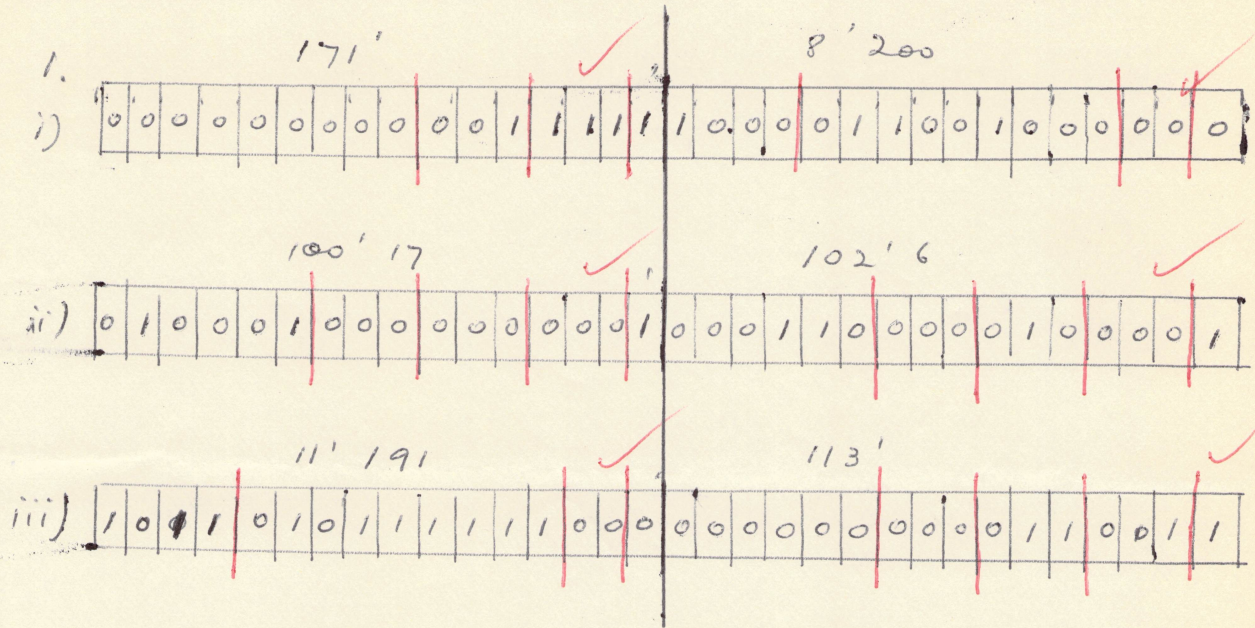 1. 171' 8' 200
i) 0 0 0 0 0 0 0 0 0 0 0 1 1 1 1 1 1 0 0 0 0 1 1 0 0 1 0 0 0 0 0 0
100' 17 102' 6
ii) 0 1 0 0 0 1 0 0 0 0 0 0 0 0 0 1 0 0 0 1 1 0 0 0 0 0 1 0 0 0 0 1
11' 191 113'
iii) 1 0 1 1 0 1 0 1 1 1 1 1 1 0 0 0 0 0 0 0 0 0 0 0 0 0 1 1 0 0 1 1